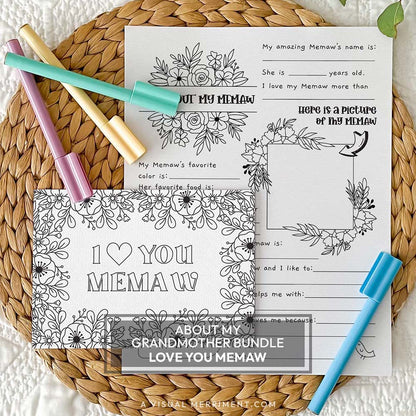 My amazing Memaw's name is:
She is years old.
I love my Memaw more than
OUT MY MEMAW
HERE IS A PICTURE
OF MY MEMAW
My Memaw's favorite
color is:
Her favorite food is:
I ♡ YOU
MEMAW
aw is:
w and I like to:
elps me with:
ves me because:
ABOUT MY
GRANDMOTHER BUNDLE
LOVE YOU MEMAW
A VISUAL MERRIMENT.COM